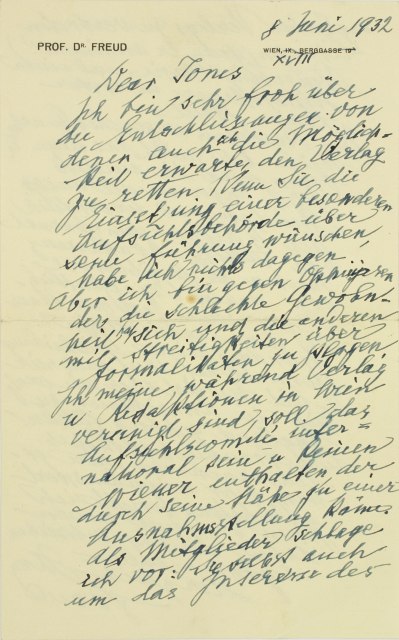 8 Juni 1932
PROF. DR. FREUD
WIEN, IX., BERGGASSE 19
XVIII
Dear Jones
Ich bin sehr froh über
die Entschliessungen von
denen auch ich die Möglich-
keit erwarte, den Verlag
zu retten. Wenn Sie die
Einsetzung einer besonderen
Aufsichtsbehörde über
seine Führung wünschen
habe ich nichts dagegen,
aber ich bin gegen
der die schlechte Gewohn-
heit hat sich und die anderen
mit Streitigkeiten über
Formalitäten zu plagen
Ich meine, während Verlag
u Redaktionen in Wien
vereinigt sind, soll das
Aufsichtskomité inter=
national sein u keinen
Wiener enthalten der
durch seine Nähe zu einer
Ausnahmsstellung käme.
Als Mitglieder schlage
ich vor: Sie selbst auch
um das Interesse des